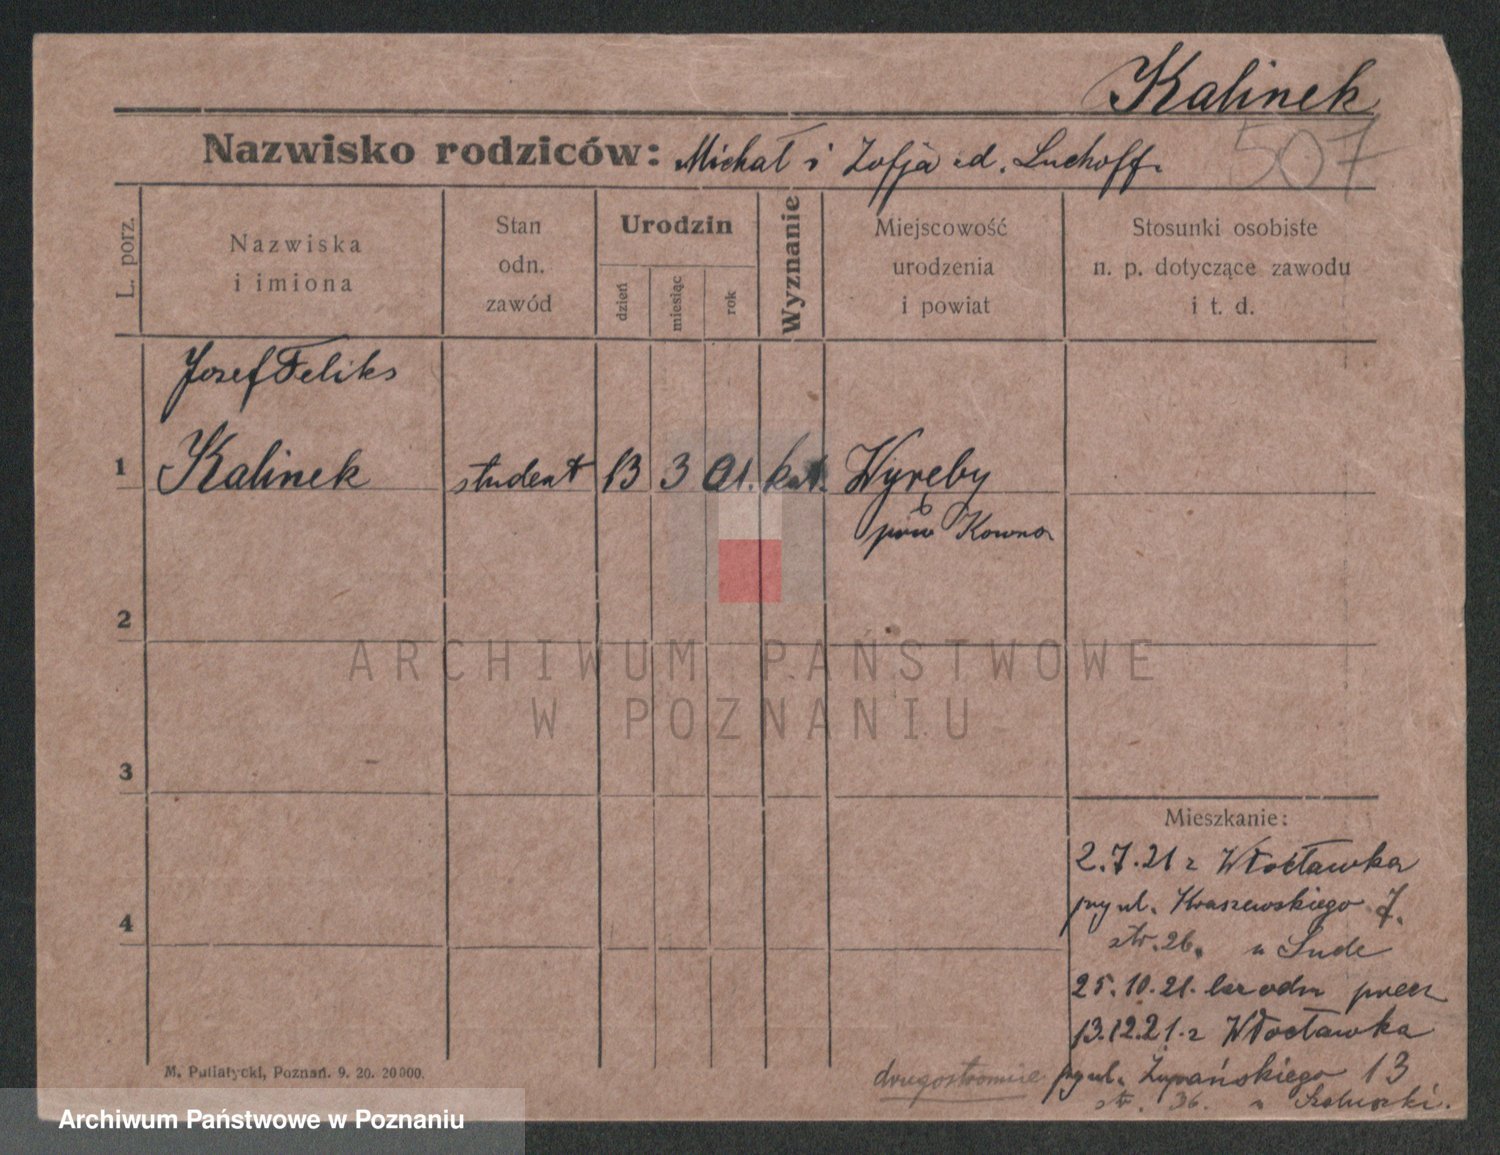 Kalinek
507
Nazwisko rodziców: Michał i Zofja
L. porz.
Nazwiska i imiona
Stan odn. zawód
Urodzin
dzień
miesiąc
rok
Wyznanie
Miejscowość urodzenia i powiat
Stosunki osobiste n. p. dotyczące zawodu i t. d.
Josef Feliks
1 Kalinek student 13 3 01. kat. Wyręby
pow Kowno
2
ARCHIWUM PAŃSTWOWE
W POZNANIU
3
Mieszkanie:
2.7.21 z Włocławka
przy ul. Kraszewskiego 7.
4
str. 26. u
25.10.21. bez odm precz
13.12.21. z Włocławka
drugostronnie przy ul. Żupańskiego 13
str. 36. u
M. Putiatycki, Poznań. 9. 20. 20000.
Archiwum Państwowe w Poznaniu